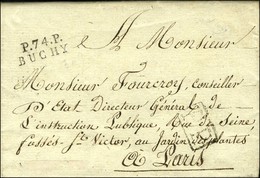 P.74.P.
BUCHY
A Monsieur
Monsieur Fourcroy, Conseiller
d'Etat Directeur Général de
L'instruction Publique Rue de Seine,
fossés St. Victor, au Jardin des plantes
A Paris